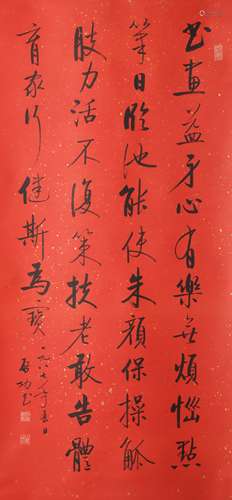 書畫益身心有樂無煩惱點
筆日臨池能使朱顏保操觚
肢力活不復策扶老敢告體
育家行健斯為寶 一九八七年 日 启功书